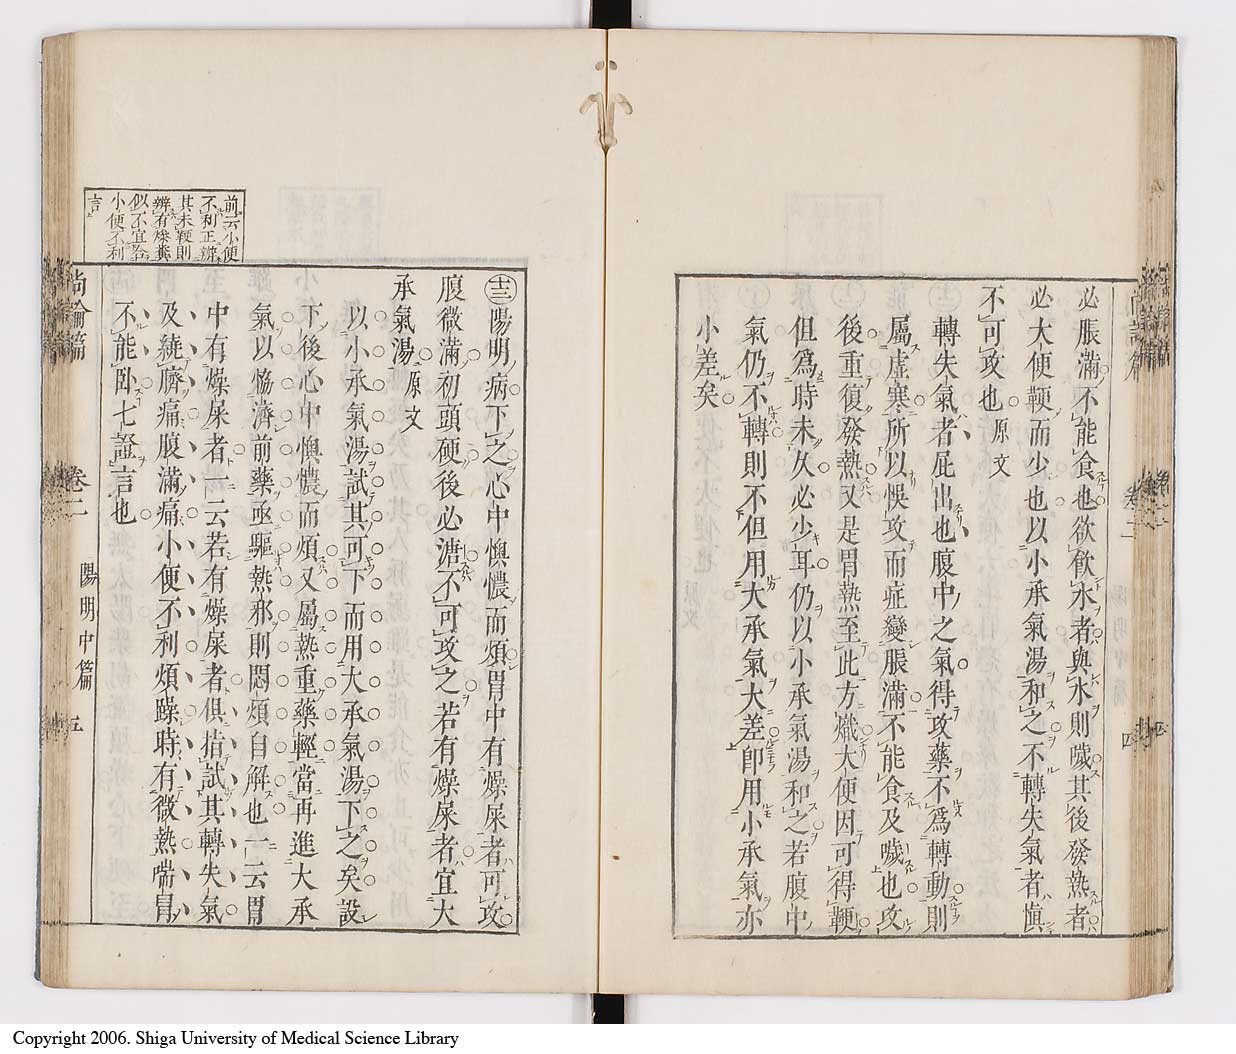 必脹滿不能食也欲飮水者與水則噦其後發熱者
必大便鞕而少也以小承氣湯和之不轉失氣者愼
不可攻也 原文
轉失氣者屁出也腹中之氣得攻藥不爲轉動則
屬虛寒所以悞攻而症變脹滿不能食及噦也攻
後重復發熱又是胃熱至此方熾大便因可得鞕
但爲時未久必少耳仍以小承氣湯和之若腹中
氣仍不轉則不但用大承氣大差卽用小承氣亦
小差矣
四
前云小便
不利正辨
其未鞕則
辨有燥糞
似不宜合
小便不利
言
十三 陽明病下之心中懊憹而煩胃中有燥屎者可攻
腹微滿初頭硬後必溏不可攻之若有燥屎者宜大
承氣湯 原文
以小承氣湯試其可下而用大承氣湯下之矣設
下後心中懊憹而煩又屬熱重藥輕當再進大承
氣以恊濟前藥亟驅熱邪則悶煩自解也一云胃
中有燥屎者一云若有燥屎者俱指試其轉失氣
及繞臍痛腹滿痛小便不利煩躁時有微熱喘冒
不能卧七證言也
尚論篇 卷二 陽明中篇 五
Copyright 2006. Shiga University of Medical Science Library